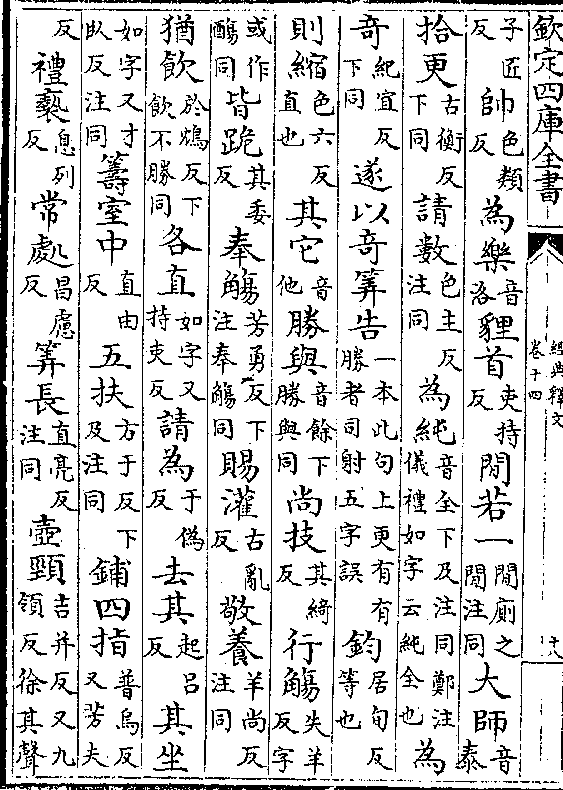 欽定四庫全書 經典釋文 卷十四 十八
子匠反帥色類反為樂音洛貍首吏持反閒若一閒廁之閒注同大師音泰
拾更古衡反下同請數色主反注同為純音全下及注同鄭注儀禮如字云純全也為
奇紀宜反下同遂以奇筭告一本此句上更有有勝者司射五字誤鈞居句反等也
則縮色六反直也其它音他勝與音餘下勝與同尚技其綺反行觴失羊反字
或作同皆跪其委反奉觴芳勇反下注奉觴同賜灌古亂反敬養羊尚反注同
猶飲於鴆反下飲不勝同各直如字又持吏反請為于偽反去其起呂反其坐
如字又才臥反注同籌室中直由反五扶方于反下及注同鋪四指普烏反又芳夫
反禮褻息列反常處昌慮反筭長直亮反注同壺頸吉井反又九領反徐其聲